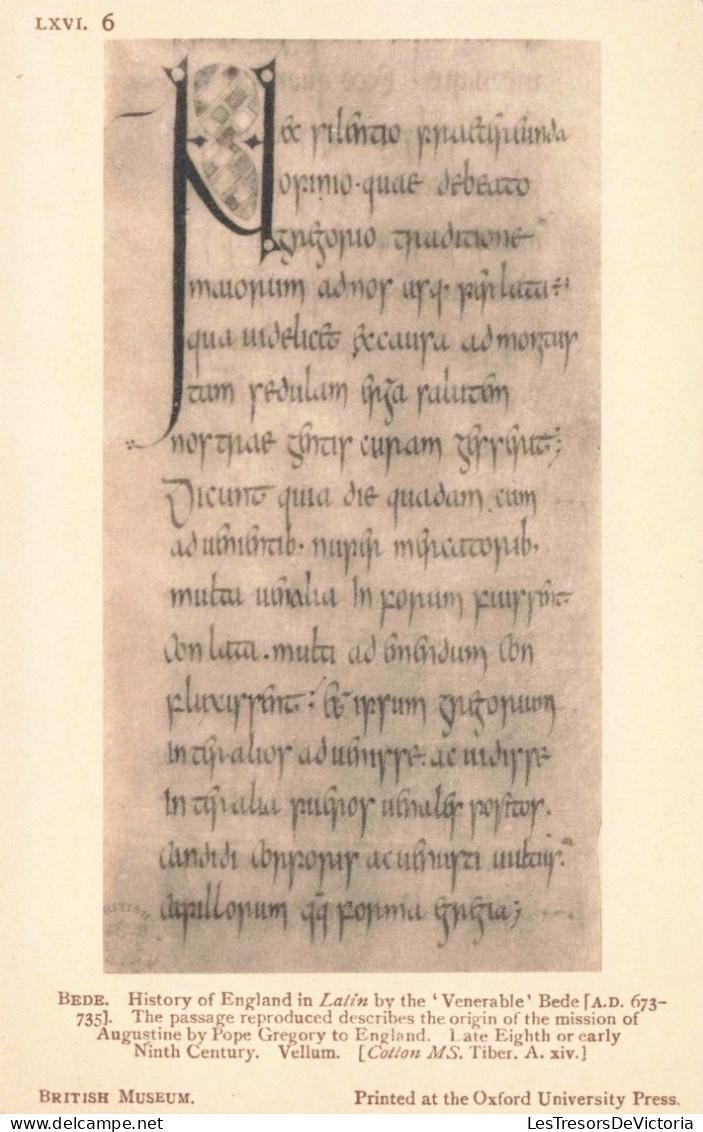 LXVI. 6
Nec silentio praetereunda
opinio · quae de beato
gregorio traditione
maiorum ad nos usq· perlata :·
qua uidelicet ex causa admonitus
tam sedulam erga salutem
nostrae gentis curam gesserit ;
Dicunt quia die quadam cum
aduenientib· nuper mercatorib·
multa uenalia In forum fuissent
Conlata · multi ad emendum Con
fluxissent : Et ipsum gregorium
Inter alios aduenisse · ac uidisse
Inter alia pueros uenales positos ·
Candidi Corporis ac uenusti uultus ·
Capillorum qq forma egregia ;
BEDE. History of England in Latin by the ‘Venerable’ Bede [A.D. 673–
735]. The passage reproduced describes the origin of the mission of
Augustine by Pope Gregory to England. Late Eighth or early
Ninth Century. Vellum. [Cotton MS. Tiber. A. xiv.]
BRITISH MUSEUM.
Printed at the Oxford University Press.
LesTresorsDeVictoria